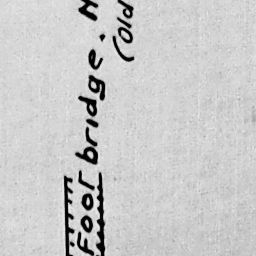 Foot bridge. N
(Old